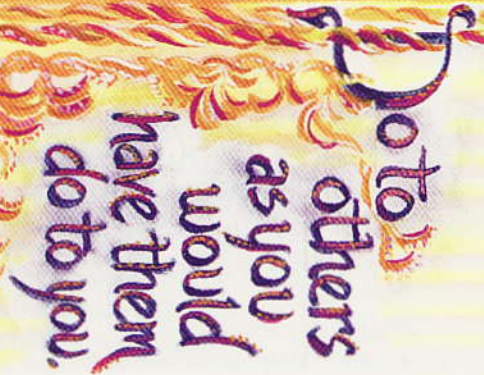 Do to
others
as you
would
have them
do to you.